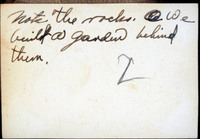 Note the rocks. We
build a garden behind
them.
2